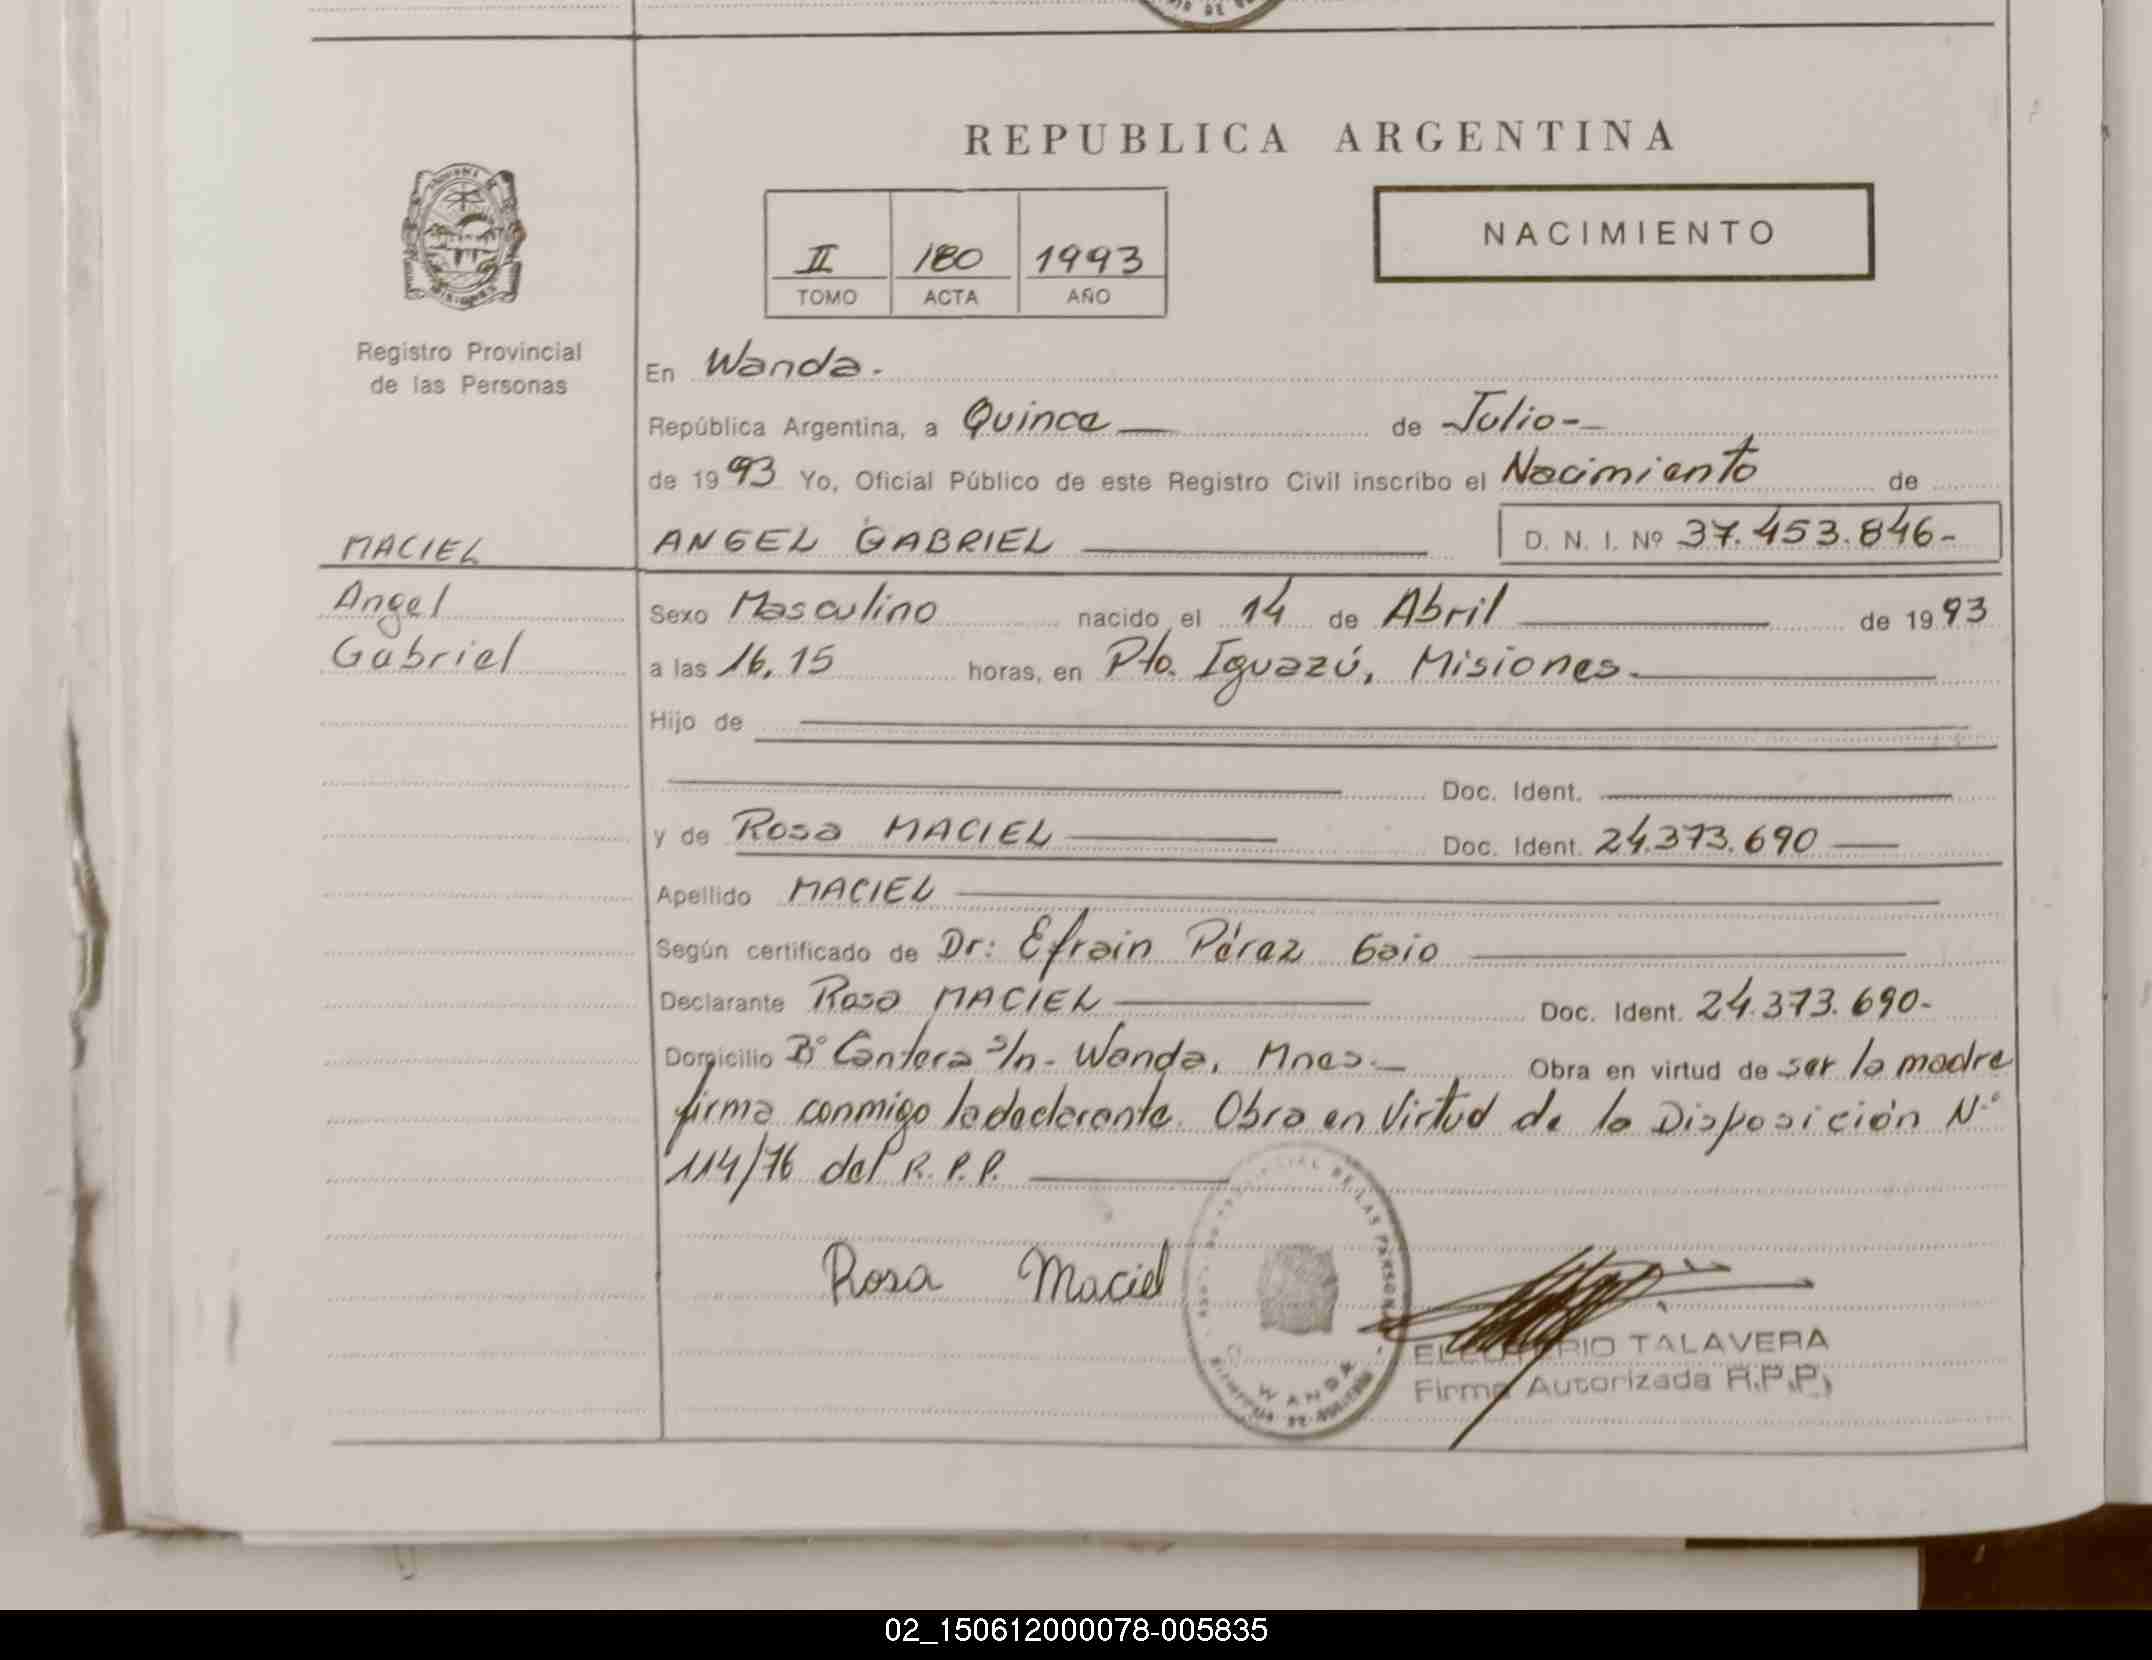 REPUBLICA ARGENTINA
II 180 1993
TOMO ACTA AÑO
NACIMIENTO
Registro Provincial
de las Personas
En Wanda.
República Argentina, a Quince de Julio
de 1993 Yo, Oficial Público de este Registro Civil inscribo el Nacimiento de
MACIEL
ANGEL GABRIEL D. N. I. Nº 37.453.846-
Angel
Gabriel
Sexo Masculino nacido el 14 de Abril de 1993
a las 16,15 horas, en Pto. Iguazú, Misiones.
Hijo de
Doc. Ident.
y de Rosa MACIEL Doc. Ident. 24.373.690
Apellido MACIEL
Según certificado de Dr: Efrain Pérez Gaio
Declarante Rosa MACIEL Doc. Ident. 24.373.690-
Domicilio Bº Cantera s/n- Wanda, Mnes. Obra en virtud de ser la madre
firma conmigo la declarante. Obra en Virtud de la Disposición Nº
114/76 del R.P.P.
Rosa Maciel
DE LAS PERSONAS
WANDA
ELEUTERIO TALAVERA
Firma Autorizada R.P.P.
02_150612000078-005835